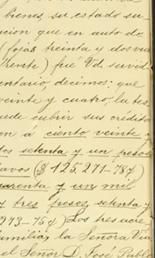 bienes, su estado su
cion que en auto de
(fojas treinta y dos vu
frente) fué Vd. servid
entario, decimos: que
veinte y cuatro, la tes
uede cubrir sus credito
n á ciento veinte y
tos setenta y un pesos
tavos ($125,271-78¢)
uarenta y un mil
y tres pesos, setenta y
273-75¢) Los tres acre
familia, la Señora Vi
el Señor D. José Pabl